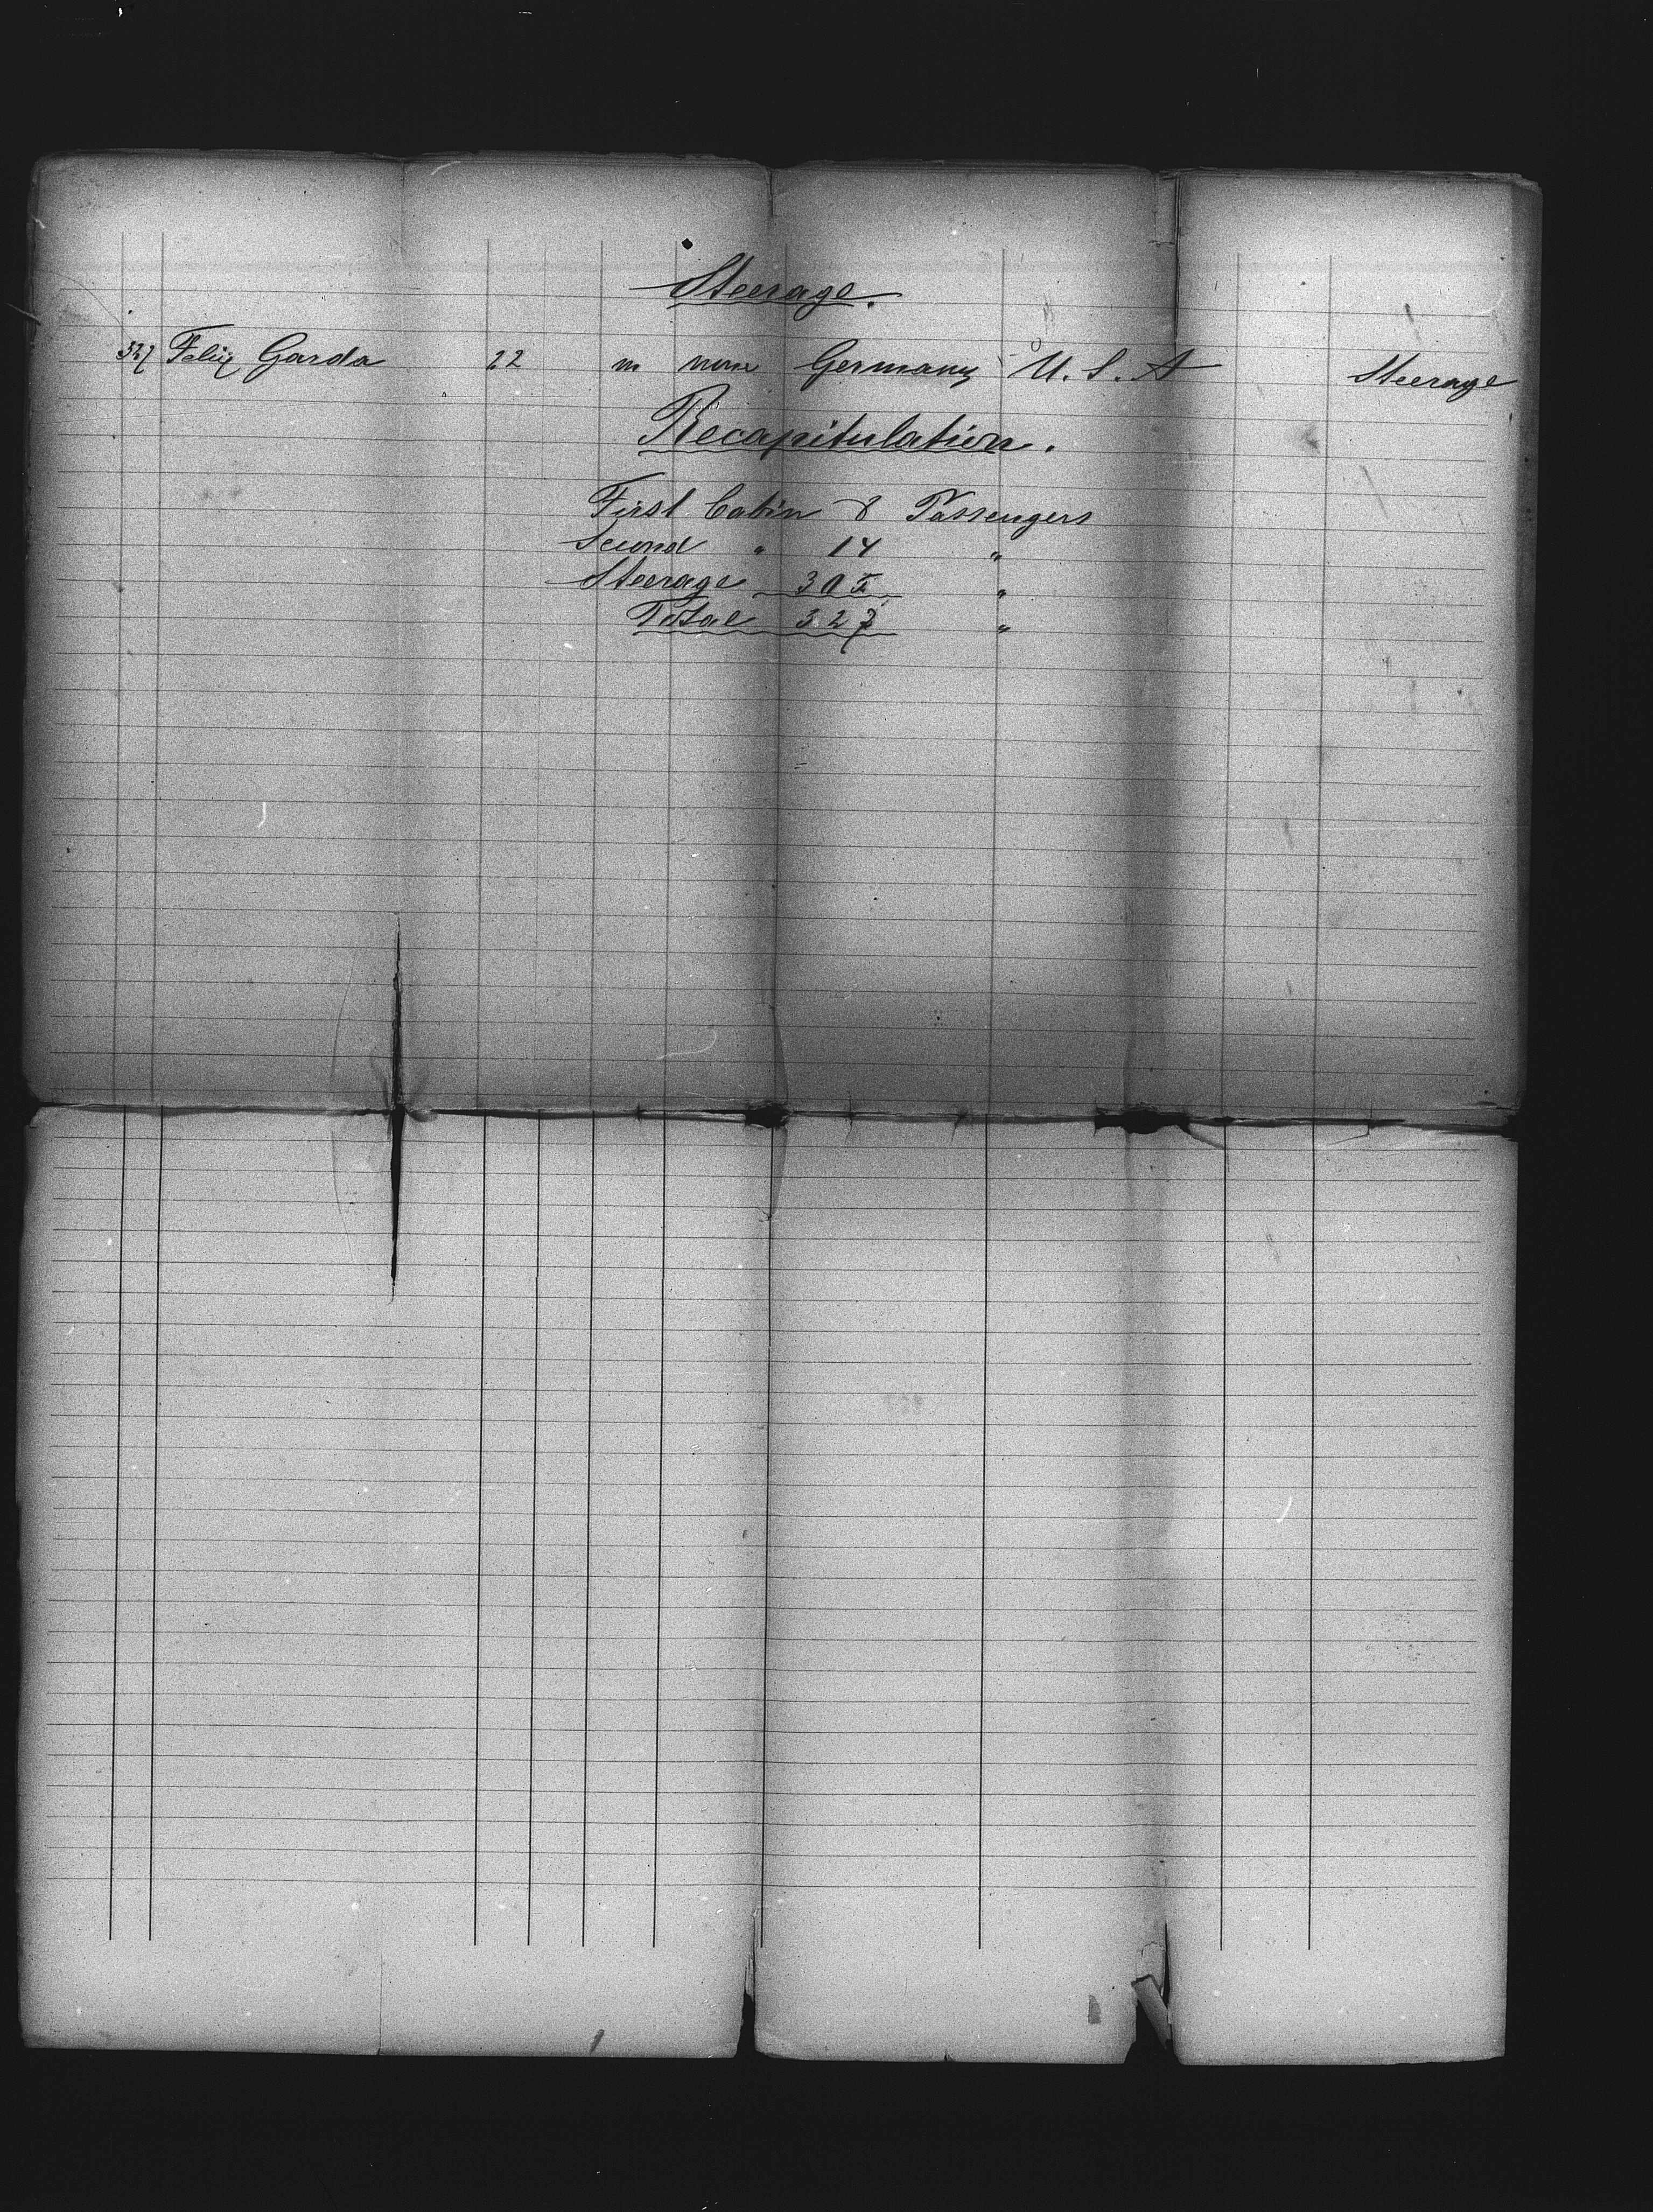 Steerage.
327 Felix Garda 22 m none Germany U.S.A Steerage
Recapitulation.
First Cabin 8 Passengers
Second " 14 "
Steerage 305 "
Total 327 "